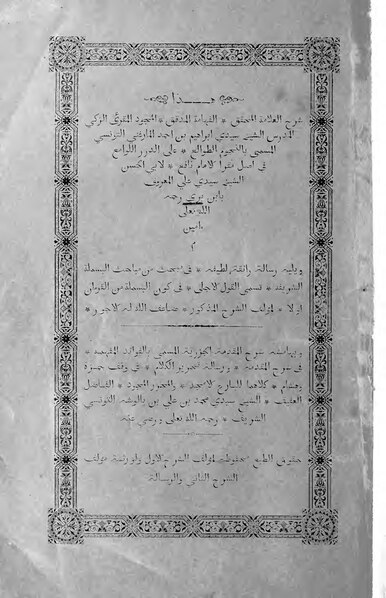 هــذا
شرح العلامة المحقق * الفهامة المدقق * المجود المقرئ الزكي
المدرس الشيخ سيدي ابراهيم بن احمد المارغني التونسي
المسمى بالنجوم الطوالع * على الدرر اللوامع
في اصل مقرا الامام نافع * لابي الحسن
الشيخ سيدي علي المعروف
بابن بري رحمه
الله تعالى
ءامين
م
ويليه رسالة رائقة لطيفة * في مبحث من مباحث البسملة
الشريفة * تسمى القول الاجلى * في كون البسملة من القرءان
او لا * لمؤلف الشرح المذكور * ضاعف الله له الاجور *
وبهامشه شرح المقدمة الجزرية المسمى بالفوائد المفهمة *
في شرح المقدمة * ورسالة تحرير الكلام * في وقف حمزة
وهشام * كلاهما للبارع الامجد * والمحرر المجود * الفاضل
العفيف * الشيخ سيدي محمد بن علي بن يالوشه التونسي
الشريف * رحمه الله تعالى ورضي عنه
حقوق الطبع محفوظة لمؤلف الشرح الاول ولورثة مؤلف
الشرح الثاني والرسالة